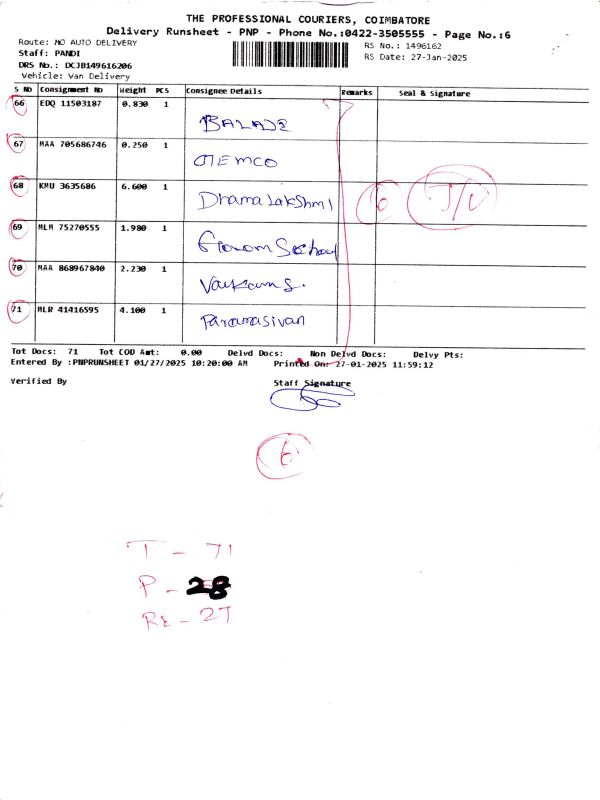 THE PROFESSIONAL COURIERS, COIMBATORE
Delivery Runsheet - PNP - Phone No.:0422-3505555 - Page No.:6
Route: MO AUTO DELIVERY
Staff: PANDI
DRS No.: DCJB149616206
Vehicle: Van Delivery
RS No.: 1496162
RS Date: 27-Jan-2025
S No Consignment No Weight PCS Consignee Details Remarks Seal & Signature
66 EDQ 11503187 0.830 1
67 MAA 705686746 0.250 1 OTEMCO
68 KMU 3635686 6.600 1 Dhama Lakshmi 6
69 MLM 75270555 1.980 1
70 MAA 868967840 2.230 1
71 MLR 41416595 4.100 1 Paramasivan
Tot Docs: 71 Tot COD Amt: 0.00 Delvd Docs: Non Delvd Docs: Delvy Pts:
Entered By :PNPRUNSHEET 01/27/2025 10:20:00 AM Printed On: 27-01-2025 11:59:12
Verified By Staff Signature
6
T - 71
P - 28
RE - 27